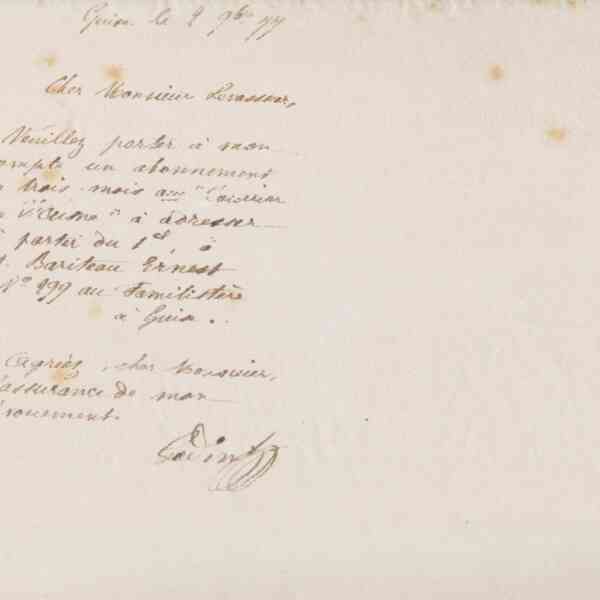 Guise le 2 9bre 77
Cher Monsieur Levasseur,
Veuillez porter à mon
ompte un abonnement
trois mois au "Courrier
l'Aisne" à adresser
partir du 1er, à
Bariteau Ernest
No 299 au Familistère
à Guise.
Agréez, cher Monsieur,
assurance de mon
vouement.
Godin